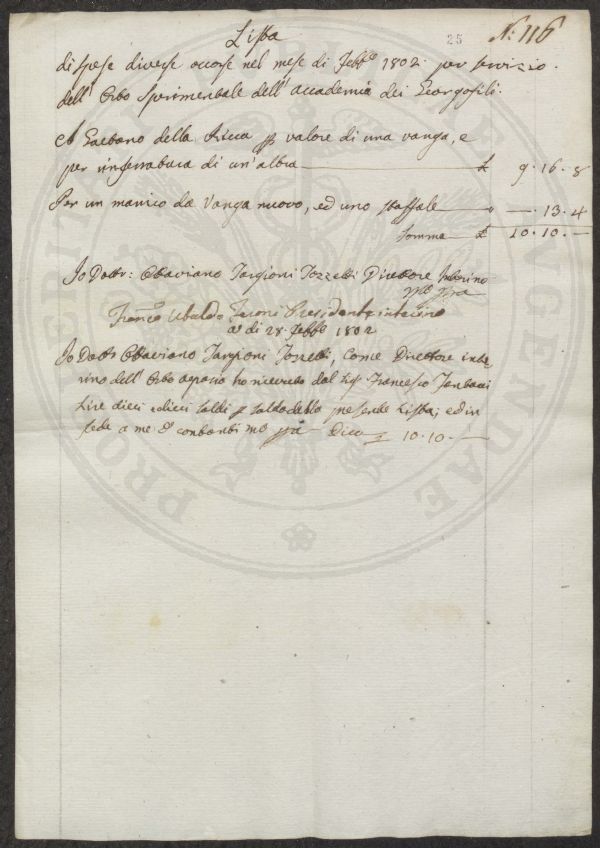 25 N: 116
Lista
di spese diverse occorse nel mese di Febb.o 1802. per servizio
dell' Orto Sperimentale dell' accademia dei Georgofili.
A Gaetano della valore di una vanga, e
per rinferratura di un' altra £ 9. 16. 8
Per un manico da Vanga nuovo, ed uno staffale " —. 13. 4
Somma £ 10. 10. —
Io Dott.: Ottaviano Targioni Tozzetti Direttore Interino
Franc.o Ubaldo Feroni Presidente interino
a di 28. Febb.o 1802
Io Dott. Ottaviano Targioni Tozzetti, come Direttore inte
rino dell' Orto agrario ho ricevuto dal Sig. Francesco
Lire dieci e dieci soldi p saldo della presente Lista; ed in
fede a me contanti Dico £ 10. 10. —
PROSPERITATI PUBLICAE AUGENDAE